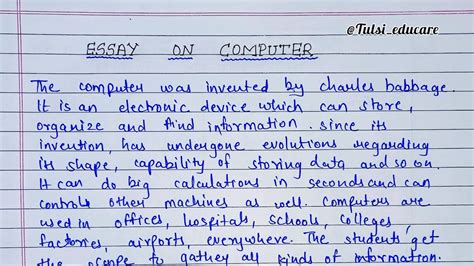 @Tulsi_educare
ESSAY ON COMPUTER
The computer was invented by charles babbage.
It is an electronic device which can store,
organize and find information. since its
invention, has undergone evolutions regarding
its shape, capability of storing data and so on.
It can do big calculations in seconds and can
controls other machines as well. Computers are
used in offices, hospitals, schools, colleges,
factories, airports, everywhere. The students get
the scope to gathey all kinds of information.